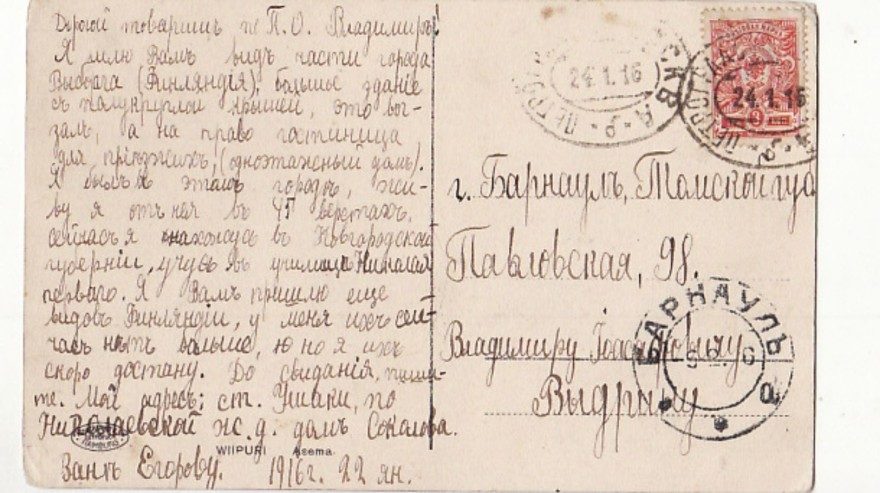 Дорогой товарищъ по П.О. Владимиръ!
Я шлю Вамъ видъ части города
Выборга (Финляндія); большое зданіе
съ полукруглой крышей, это вок-
залъ, а на право гостиница
для пріѣзжихъ, (одноэтажный домъ).
Я былъ въ этомъ городѣ, жи-
ву я отъ нея въ 45 верстахъ,
сейчасъ я нахожусь въ Новгородской
губерніи, учусь въ училищѣ Николая
перваго. Я Вамъ пришлю еще
видовъ Финляндіи, у меня ихъ сей-
часъ нѣтъ больше, но я ихъ
скоро достану. До свиданія, пиши-
те. Мой адресъ; ст. Ушаки, по
Николаевской ж. д. домъ Соколова.
WIIPURI Asema
Ванѣ Егорову. 1916г. 22 ян.
24.1.16
ПЕТРОГРАДЪ
24.1.16
г. Барнаулъ, Томской губ
Павловская, 98.
Владимиру
Выдрину
БАРНАУЛЪ